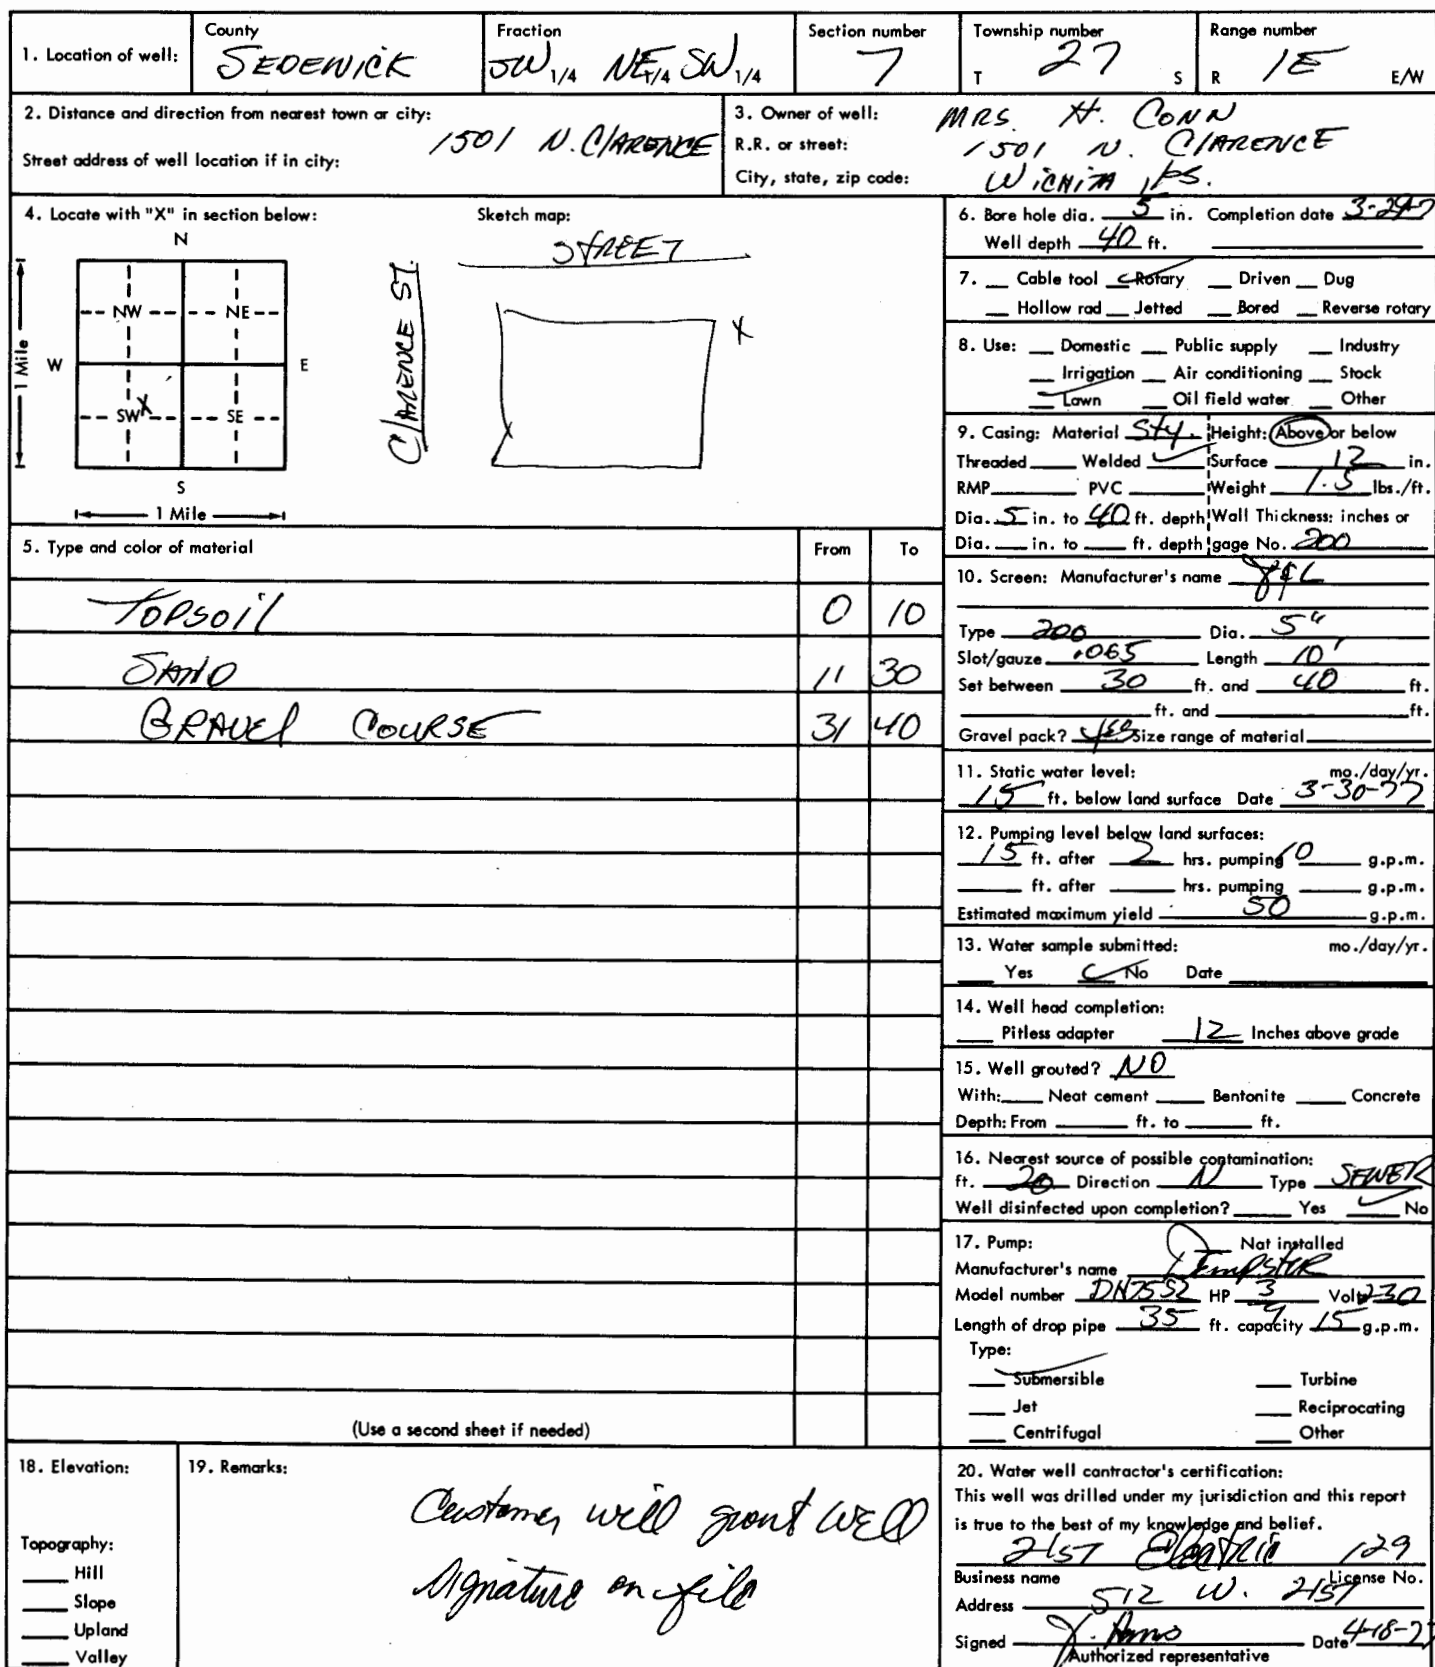 1. Location of well:
County
SEDEWICK
Fraction
SW 1/4 NE 1/4 SW 1/4
Section number
7
Township number
T 27 S
Range number
R 1E E/W
2. Distance and direction from nearest town or city:
1501 N. CLARENCE
Street address of well location if in city:
3. Owner of well: MRS. H. CONN
R.R. or street: 1501 N. CLARENCE
City, state, zip code: WICHITA, KS.
4. Locate with "X" in section below:
N
NW NE
W E
SW X SE
S
1 Mile
1 Mile
Sketch map:
STREET
CLARENCE ST.
X
5. Type and color of material From To
TOPSOIL 0 10
SAND 11 30
GRAVEL COURSE 31 40
(Use a second sheet if needed)
6. Bore hole dia. 5 in. Completion date 3-29-7
Well depth 40 ft.
7. Cable tool Rotary Driven Dug
Hollow rod Jetted Bored Reverse rotary
8. Use: Domestic Public supply Industry
Irrigation Air conditioning Stock
Lawn Oil field water Other
9. Casing: Material Sty. Height: Above or below
Threaded Welded Surface 12 in.
RMP PVC Weight 1.5 lbs./ft.
Dia. 5 in. to 40 ft. depth Wall Thickness: inches or
Dia. in. to ft. depth gage No. 200
10. Screen: Manufacturer's name
Type 200 Dia. 5"
Slot/gauze .065 Length 10'
Set between 30 ft. and 40 ft.
ft. and ft.
Gravel pack? yes Size range of material
11. Static water level: mo./day/yr.
15 ft. below land surface Date 3-30-77
12. Pumping level below land surfaces:
15 ft. after 2 hrs. pumping 10 g.p.m.
ft. after hrs. pumping g.p.m.
Estimated maximum yield 50 g.p.m.
13. Water sample submitted: mo./day/yr.
Yes No Date
14. Well head completion:
Pitless adapter 12 Inches above grade
15. Well grouted? NO
With: Neat cement Bentonite Concrete
Depth: From ft. to ft.
16. Nearest source of possible contamination:
ft. 20 Direction N Type SEWER
Well disinfected upon completion? Yes No
17. Pump: Not installed
Manufacturer's name Dempster
Model number DN7552 HP 3/4 Volts 230
Length of drop pipe 35 ft. capacity 15 g.p.m.
Type:
Submersible Turbine
Jet Reciprocating
Centrifugal Other
18. Elevation:
Topography:
Hill
Slope
Upland
Valley
19. Remarks:
Customer will grout well
Signature on file
20. Water well contractor's certification:
This well was drilled under my jurisdiction and this report
is true to the best of my knowledge and belief.
21ST Electric 129
Business name License No.
Address 512 W. 21ST
Signed Date 4-18-77
Authorized representative